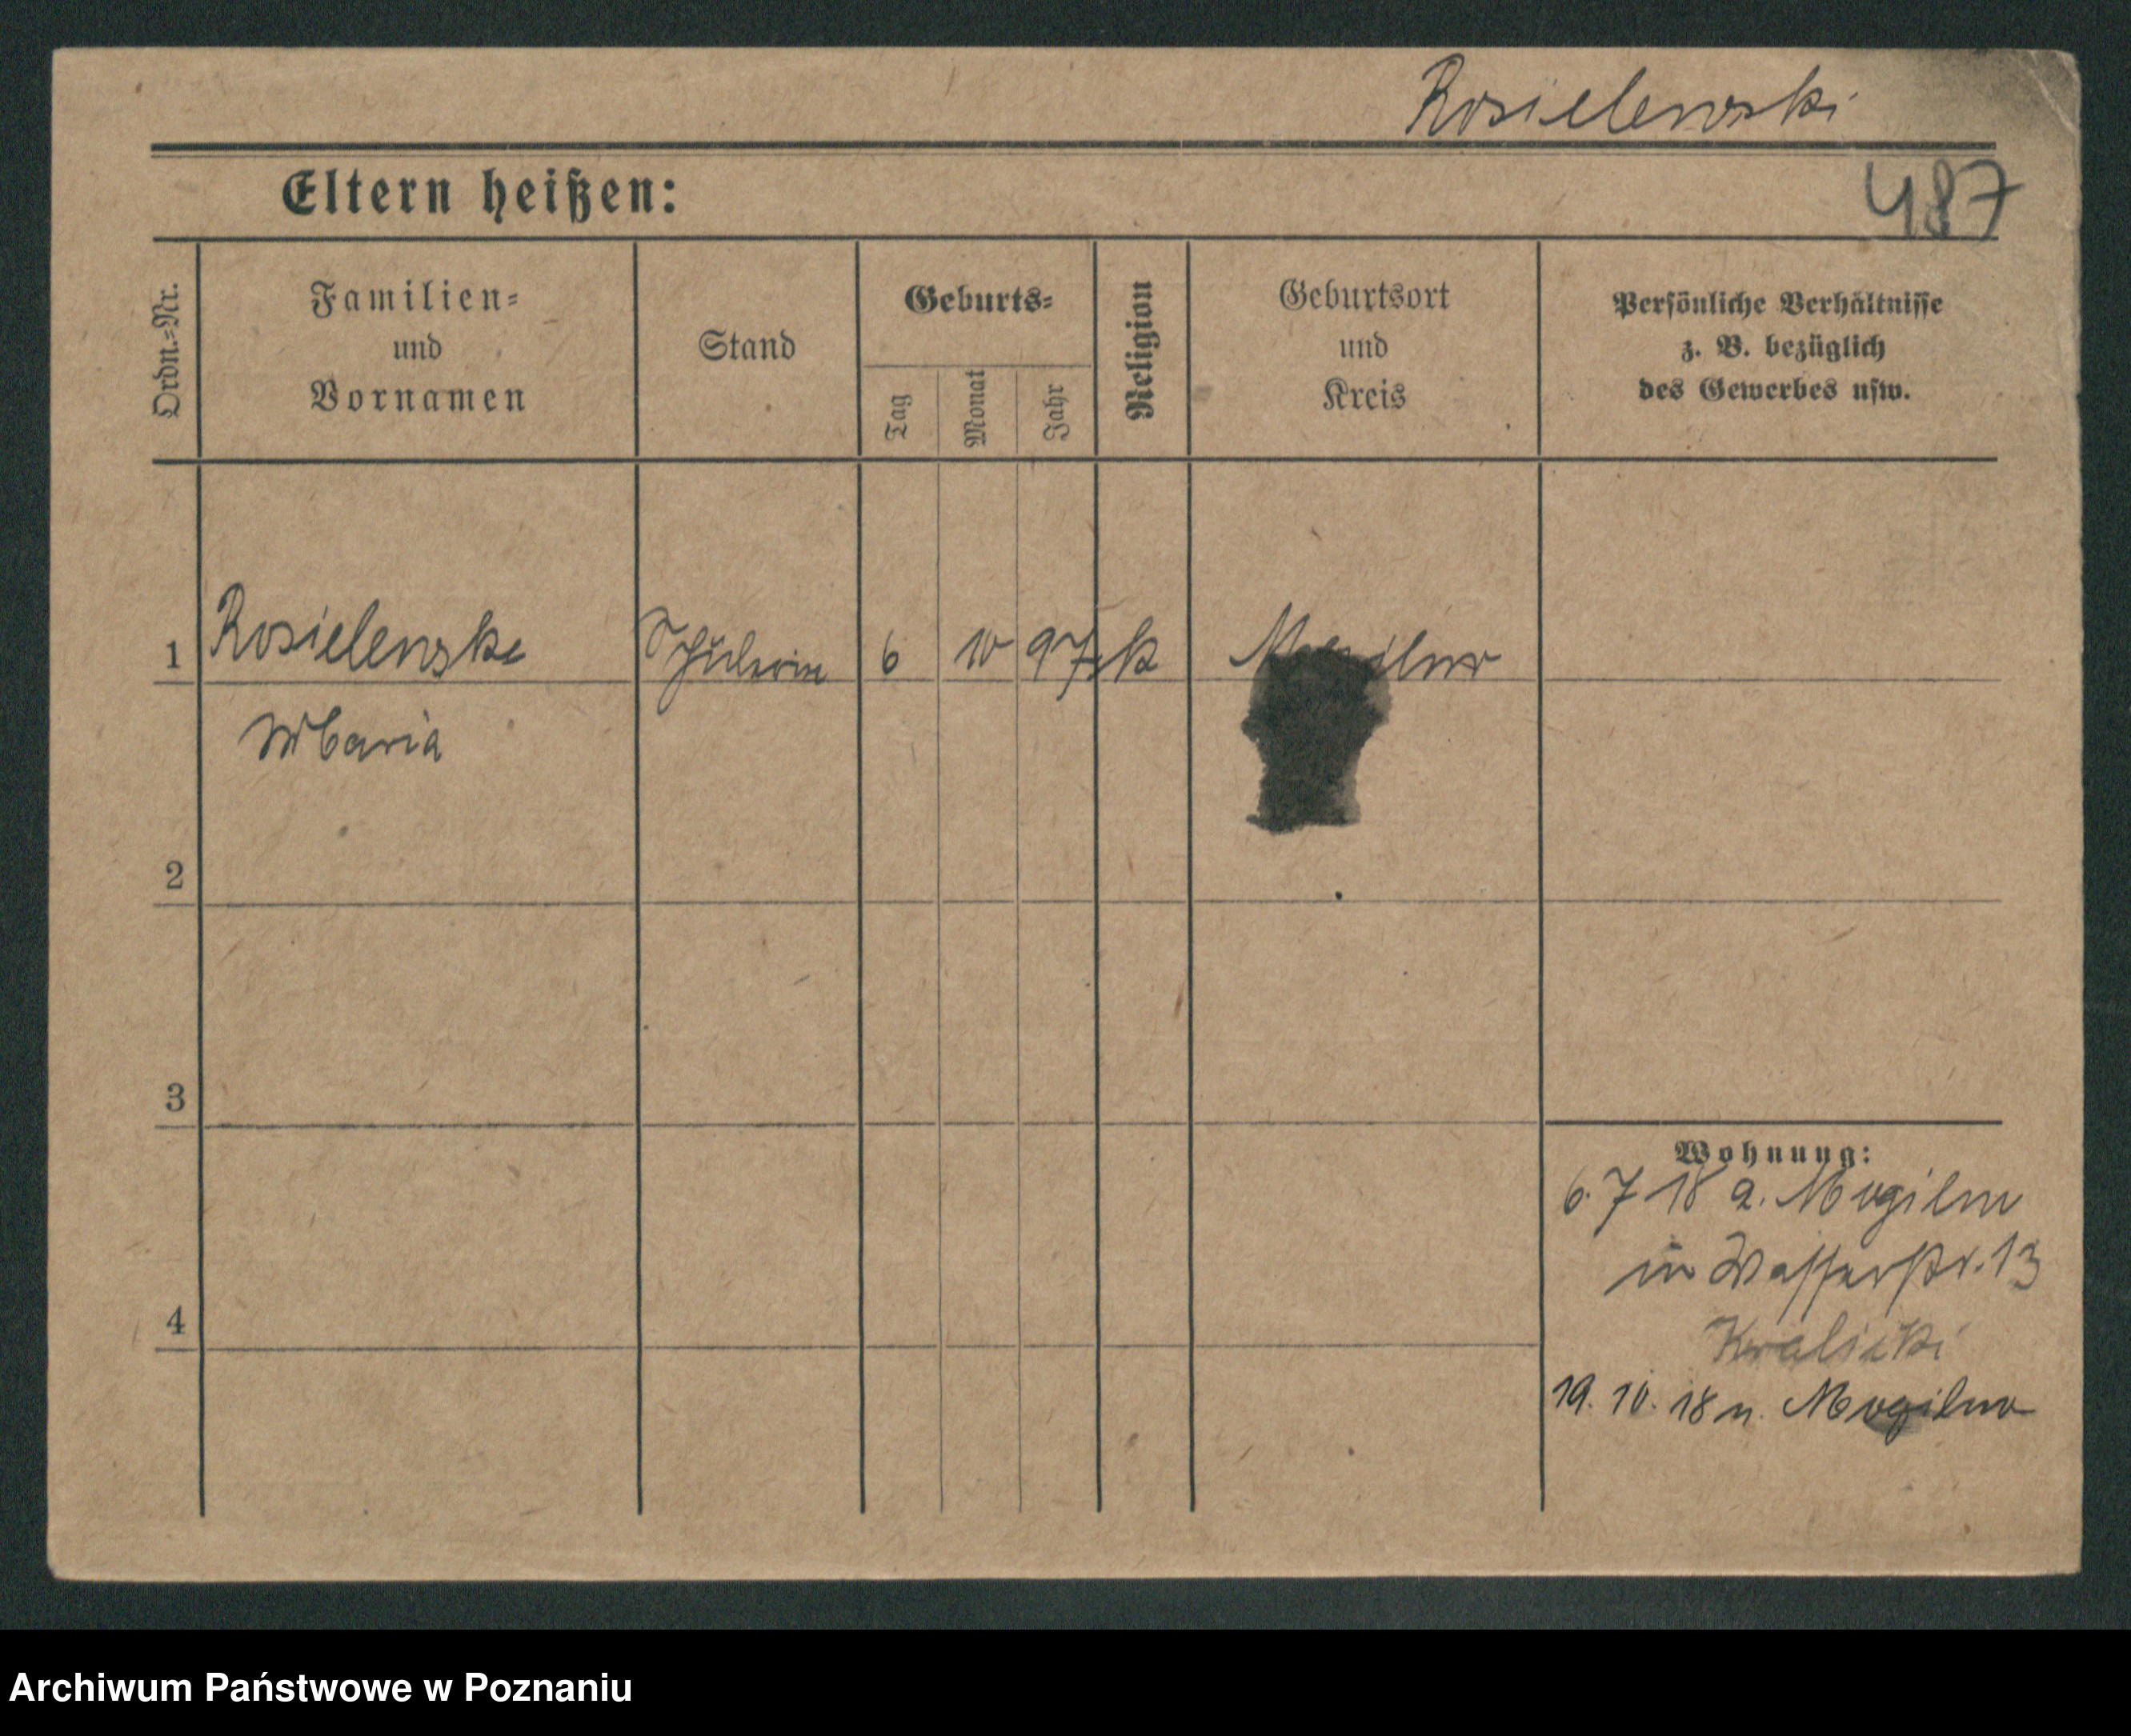 Rosielewski
Eltern heißen:
487
Ordn.=Nr.
Familien=
und
Vornamen
Stand
Geburts=
Tag
Monat
Jahr
Religion
Geburtsort
und
Kreis
Persönliche Verhältnisse
z. B. bezüglich
des Gewerbes usw.
1 Rosielewska Schülerin 6 10 97 k Mogilno
Maria
2
3
4
Wohnung:
6. 7 18 a. Mogilno
in Wasserstr. 13
Kralicki
19. 10. 18 n. Mogilno
Archiwum Państwowe w Poznaniu